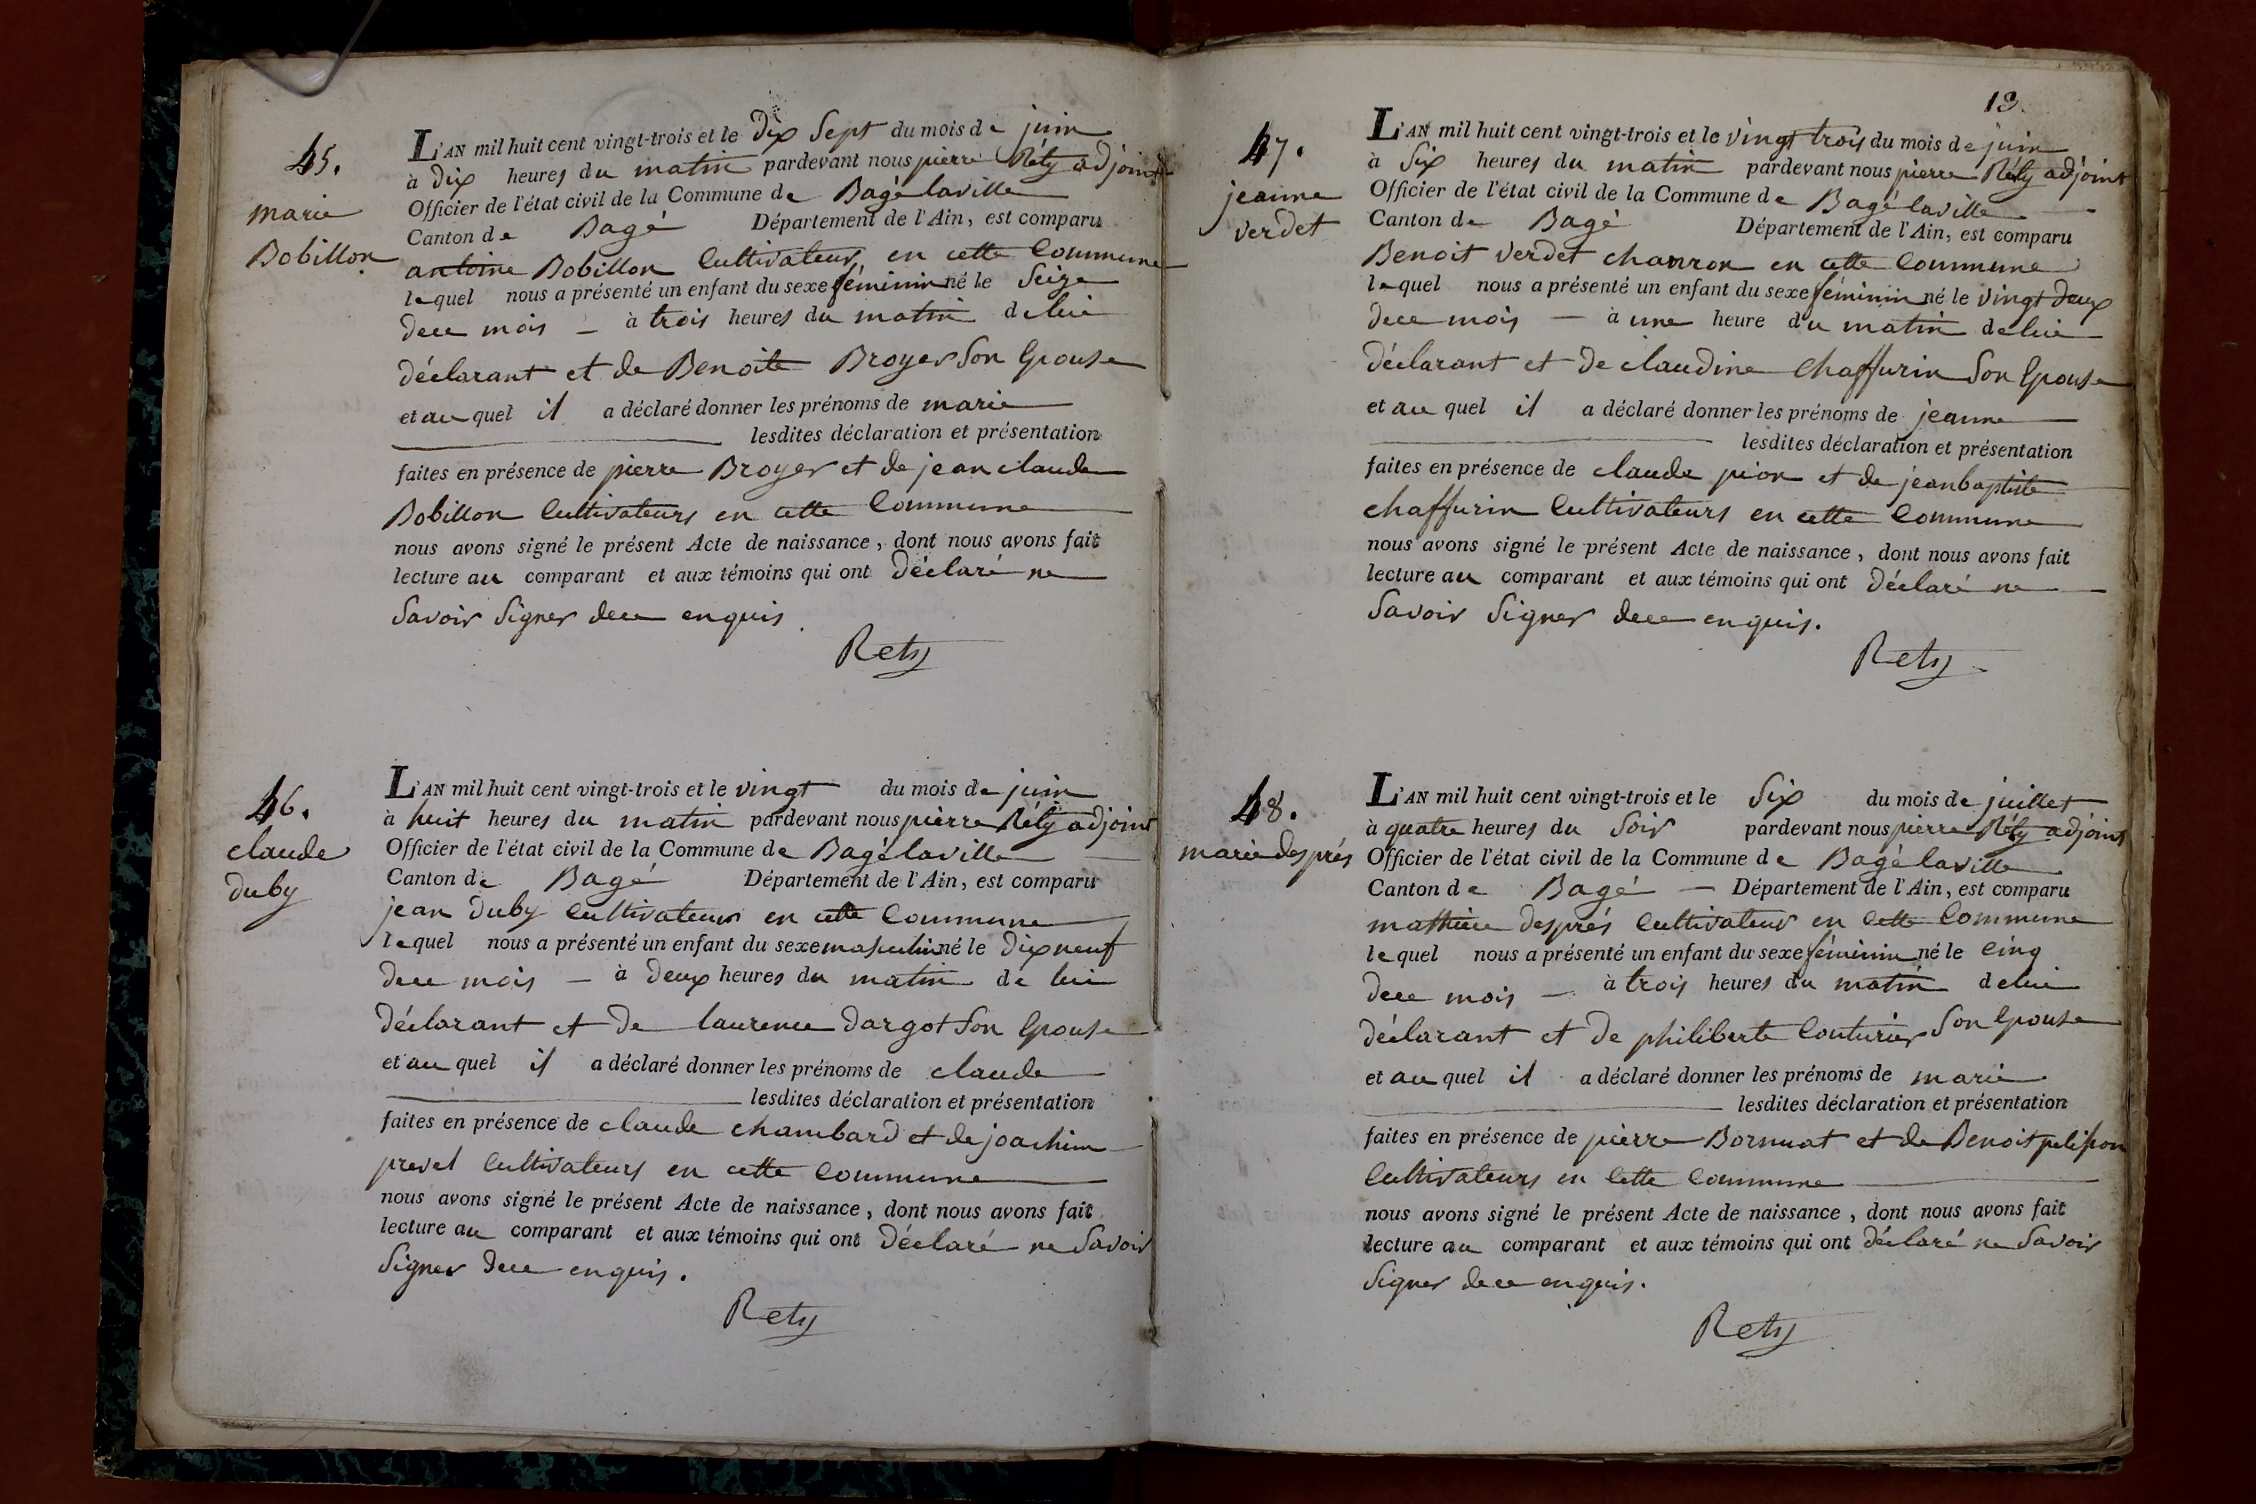 45.
marie
Bobillon
L'AN mil huit cent vingt-trois et le dix Sept du mois de juin
à dix heures du matin pardevant nous pierre Réty adjoint
Officier de l'état civil de la Commune de Bagé laville
Canton de Bagé Département de l'Ain, est comparu
antoine Bobillon Cultivateur en cette Commune
lequel nous a présenté un enfant du sexe féminin né le Seize
dece mois à trois heures du matin de lui
déclarant et de Benoite Broyer Son Epouse
et au quel il a déclaré donner les prénoms de marie
lesdites déclaration et présentation
faites en présence de pierre Broyer et de jean claude
Bobillon Cultivateurs en cette Commune
nous avons signé le présent Acte de naissance, dont nous avons fait
lecture au comparant et aux témoins qui ont déclaré ne
Savoir Signer dece enquis
Rety
46.
claude
duby
L'AN mil huit cent vingt-trois et le vingt du mois de juin
à huit heures du matin pardevant nous pierre Réty adjoint
Officier de l'état civil de la Commune de Bagé laville
Canton de Bagé Département de l'Ain, est comparu
jean duby Cultivateur en cette Commune
lequel nous a présenté un enfant du sexe masculin né le dix neuf
dece mois à deux heures du matin de lui
déclarant et de laurence dargot Son Epouse
et au quel il a déclaré donner les prénoms de claude
lesdites déclaration et présentation
faites en présence de claude chambard et de joachim
prevel Cultivateurs en cette Commune
nous avons signé le présent Acte de naissance, dont nous avons fait
lecture au comparant et aux témoins qui ont déclaré ne Savoir
Signer dece enquis.
Rety
13.
47.
jeanne
verdet
L'AN mil huit cent vingt-trois et le vingt trois du mois de juin
à Six heures du matin pardevant nous pierre Réty adjoint
Officier de l'état civil de la Commune de Bagé laville
Canton de Bagé Département de l'Ain, est comparu
Benoit verdet charron en cette Commune
lequel nous a présenté un enfant du sexe féminin né le vingt deux
dece mois à une heure du matin de lui
déclarant et de claudine Chaffurin Son Epouse
et au quel il a déclaré donner les prénoms de jeanne
lesdites déclaration et présentation
faites en présence de claude pion et de jean baptiste
chaffurin Cultivateurs en cette Commune
nous avons signé le présent Acte de naissance, dont nous avons fait
lecture au comparant et aux témoins qui ont déclaré ne
Savoir Signer dece enquis.
Rety
48.
marie després
L'AN mil huit cent vingt-trois et le Six du mois de juillet
à quatre heures du Soir pardevant nous pierre Réty adjoint
Officier de l'état civil de la Commune de Bagé laville
Canton de Bagé Département de l'Ain, est comparu
mathieu després Cultivateur en Cette Commune
lequel nous a présenté un enfant du sexe féminin né le Cinq
dece mois à trois heures du matin de lui
déclarant et de philiberte Couturier Son Epouse
et au quel il a déclaré donner les prénoms de marie
lesdites déclaration et présentation
faites en présence de pierre Bornuat et de Benoit pelisson
Cultivateurs en Cette Commune
nous avons signé le présent Acte de naissance, dont nous avons fait
lecture au comparant et aux témoins qui ont déclaré ne Savoir
Signer dece enquis.
Rety